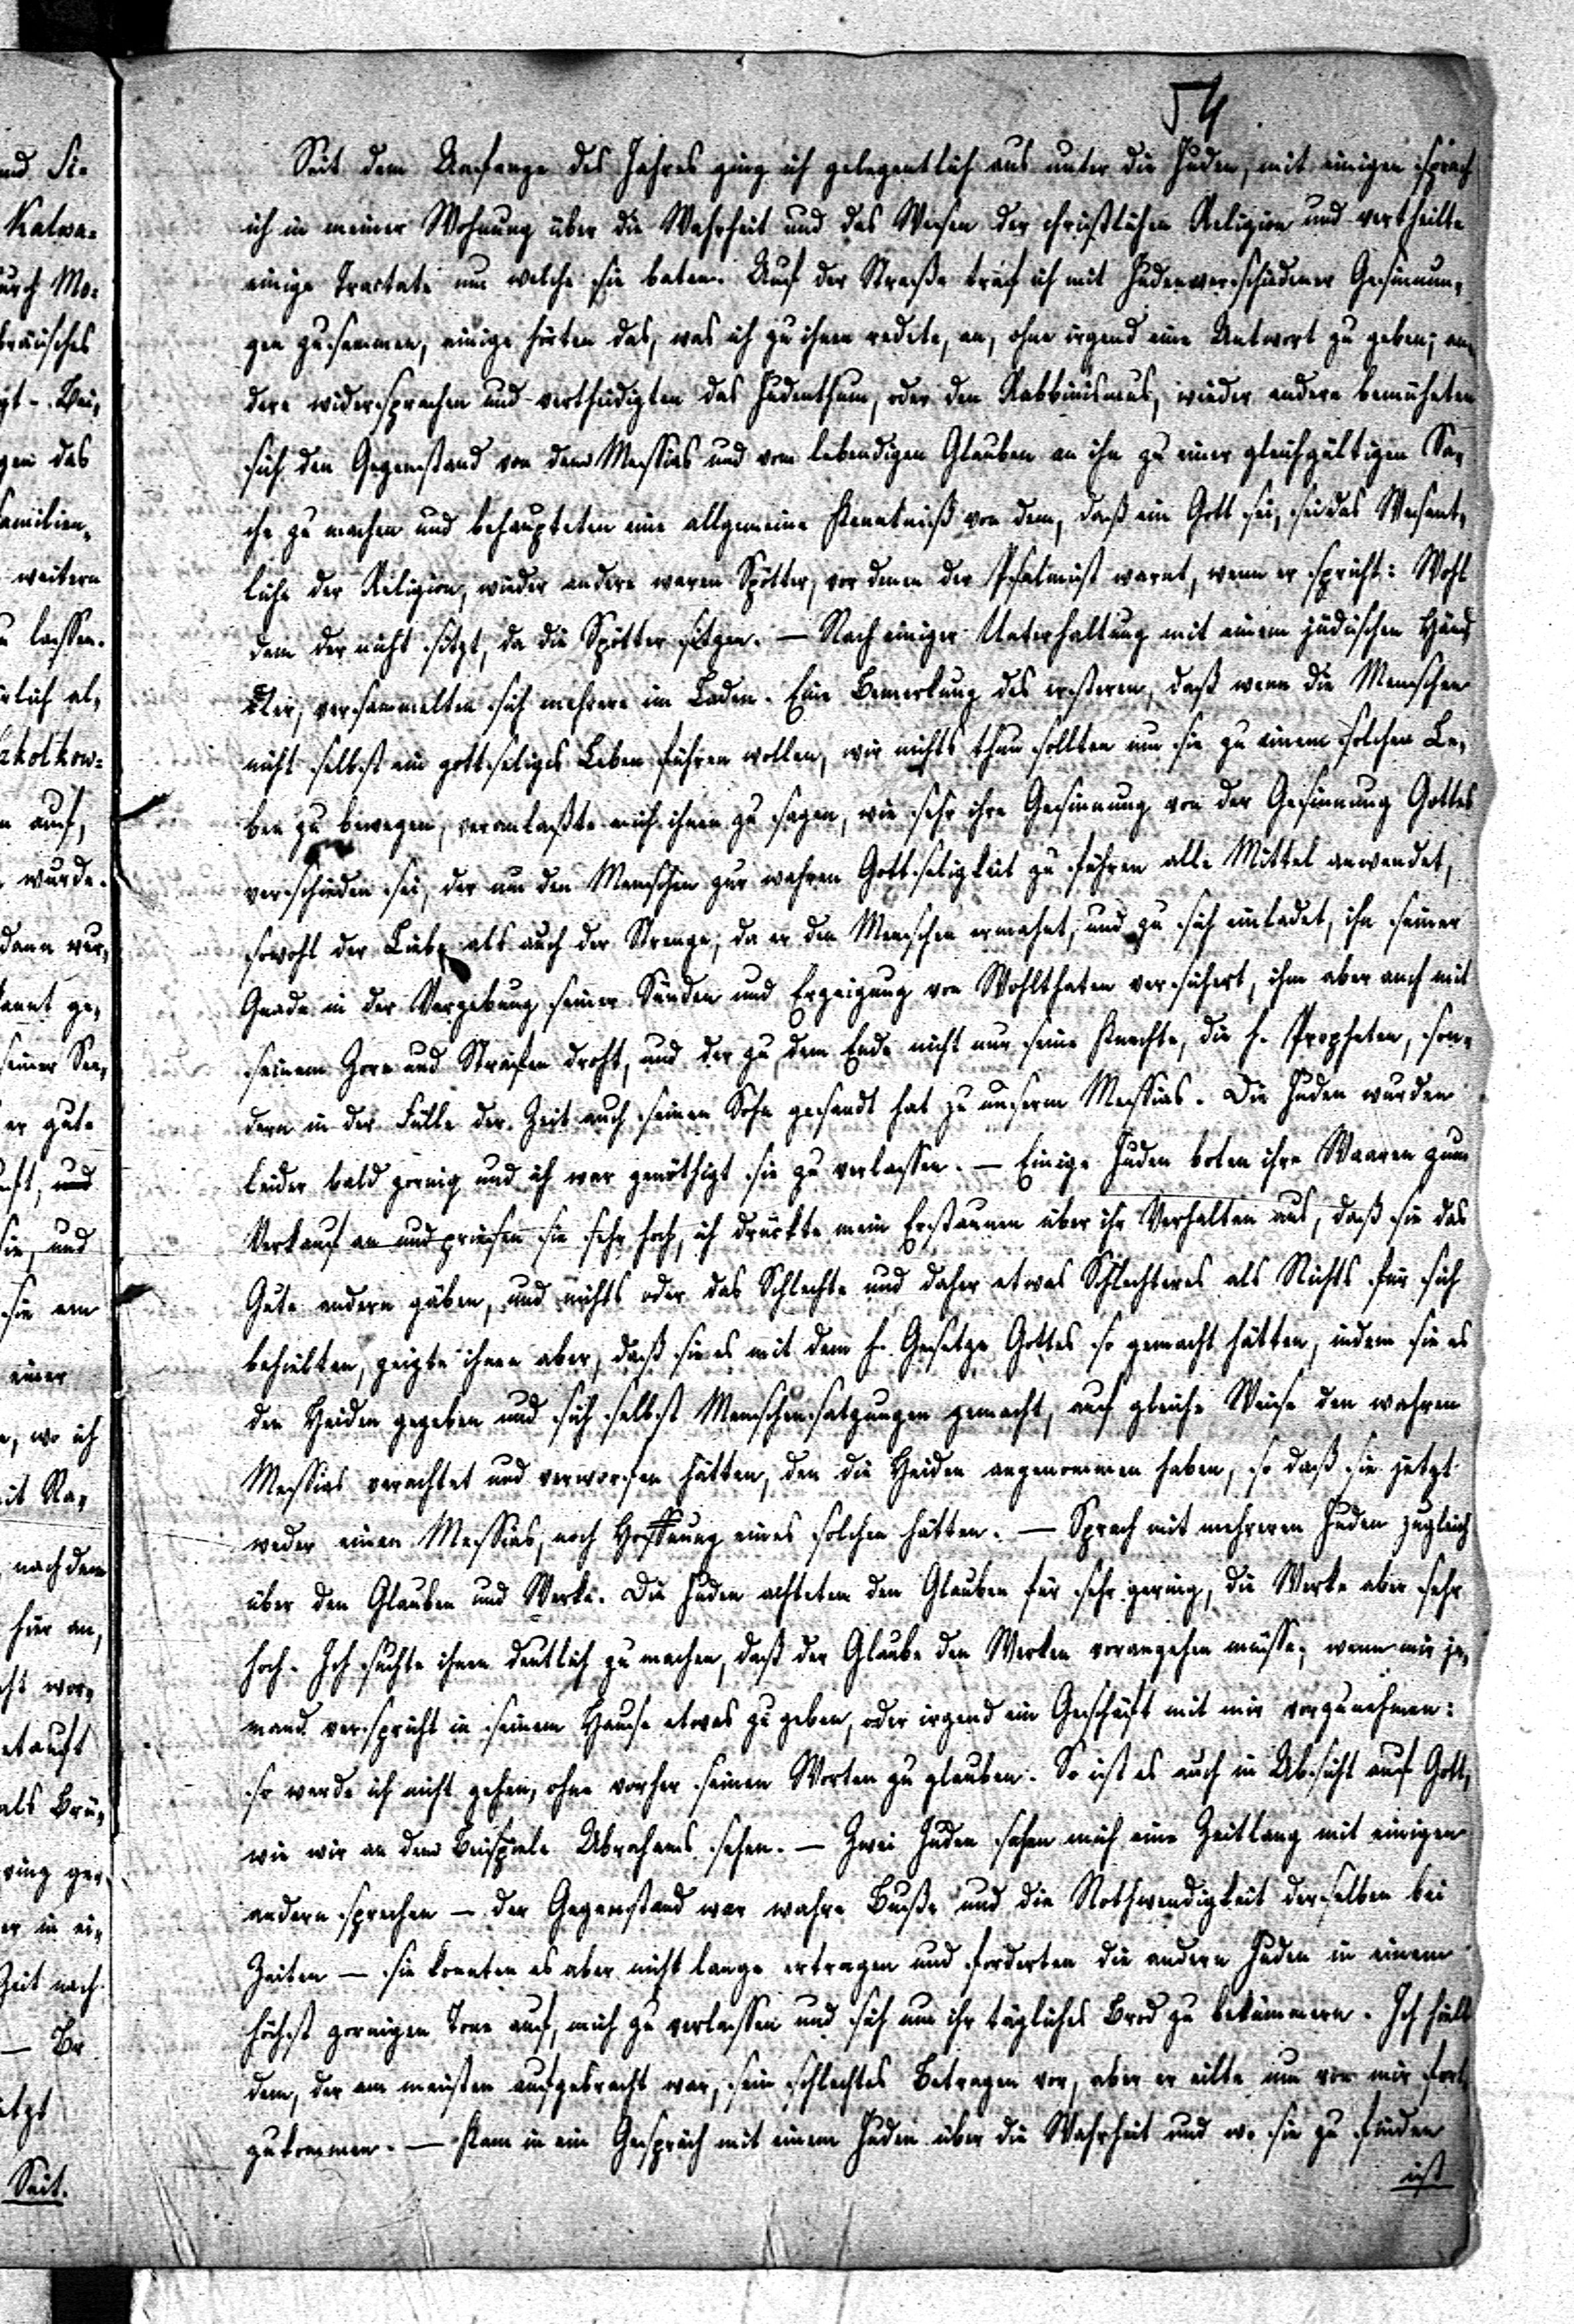 54
Seit dem Anfange des Jahres ging ich gelegentlich aus unter die Juden, mit einigen sprach
ich in meiner Wohnung über die Wahrheit und das Wesen der christlichen Religion und vertheilte
einige Tractate um welche sie baten. Auf der Straße traf ich mit Juden verschiedener Gesinnun-
gen zusammen, einige hörten das, was ich zu ihnen redete, an, ohne irgend eine Antwort zu geben; an-
dere widersprachen und vertheidigten das Judenthum, oder den Rabbinismus, wieder andere bemüheten
sich den Gegenstand von dem Messias und vom lebendigen Glauben an ihn zu einer gleichgültigen Sa-
che zu machen und behaupteten eine allgemeine Kenntniß von dem, daß ein Gott sei, sei das Wesent-
liche der Religion, wieder andere waren Spötter, vor denen der Psalmist warnt, wenn er spricht: Wohl
dem der nicht sitzt, da die Spötter sitzen. — Nach einiger Unterhaltung mit einem jüdischen Händ
ler, versammelten sich mehrere im Laden. Eine Bemerkung des ersteren, daß wenn die Menschen
nicht selbst ein gottseliges Leben führen wollen, wir nichts thun sollten um sie zu einem solchen Le-
ben zu bewegen, veranlaßte mich ihnen zu sagen, wie sehr ihre Gesinnung von der Gesinnung Gottes
verschieden sei, der um den Menschen zur wahren Gottseligkeit zu führen alle Mittel anwendet,
sowohl der Liebe als auch der Strenge, da er den Menschen ermahnt, und zu sich einladet, ihn seiner
Gnade in der Vergebung seiner Sünden und Erzeigung von Wohlthaten versichert, ihm aber auch mit
seinem Zorn und Strafen droht, und der zu dem Ende nicht nur seine Knechte, die h. Propheten, son-
dern in der Fülle der Zeit auch seinen Sohn gesandt hat zu unserm Messias. Die Juden wurden
leider bald zornig und ich war genöthigt sie zu verlassen. — Einige Juden boten ihre Waaren zum
Verkauf an und priesen sie sehr hoch, ich drückte mein Erstaunen über ihr Verhalten aus, daß sie das
Gute andern gäben, und nichts oder das Schlechte und daher etwas Schlechteres als Nichts für sich
behielten, zeigte ihnen aber, daß sie es mit dem h. Gesetze Gottes so gemacht hätten, indem sie es
den Heiden gegeben und sich selbst Menschensatzungen gemacht, auf gleiche Weise den wahren
Messias verachtet und verworfen hätten, den die Heiden angenommen haben, so daß sie jetzt
weder einen Messias, noch Hoffnung eines solchen hätten. — Sprach mit mehreren Juden zugleich
über den Glauben und Werke. Die Juden achteten den Glauben für sehr gering, die Werke aber sehr
hoch. Ich suchte ihnen deutlich zu machen, daß der Glaube den Werken vorangehen müsse; wenn mir je-
mand verspricht in seinem Hause etwas zu geben, oder irgend ein Geschäft mit mir vorzunehmen:
so werde ich nicht gehen, ohne vorher seinen Worten zu glauben. So ist es auch in Absicht auf Gott,
wie wir an dem Beispiele Abrahams sehen. — Zwei Juden sahen mich eine Zeitlang mit einigen
andern sprechen — der Gegenstand war wahre Buße und die Nothwendigkeit derselben bei
Zeiten — sie konnten es aber nicht lange ertragen und forderten die andern Juden in einem
höchst zornigen Tone auf, mich zu verlassen und sich um ihr tägliches Brod zu bekümmern. Ich hielt
dem, der am meisten aufgebracht war, sein schlechtes Betragen vor, aber er eilte um von mir fort
zukommen. — Kam in ein Gespräch mit einem Juden über die Wahrheit und wo sie zu finden
ist